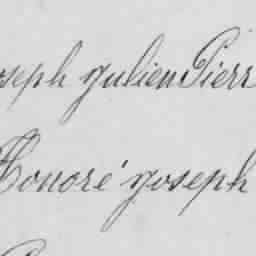 oseph julien Pierr
Honoré joseph